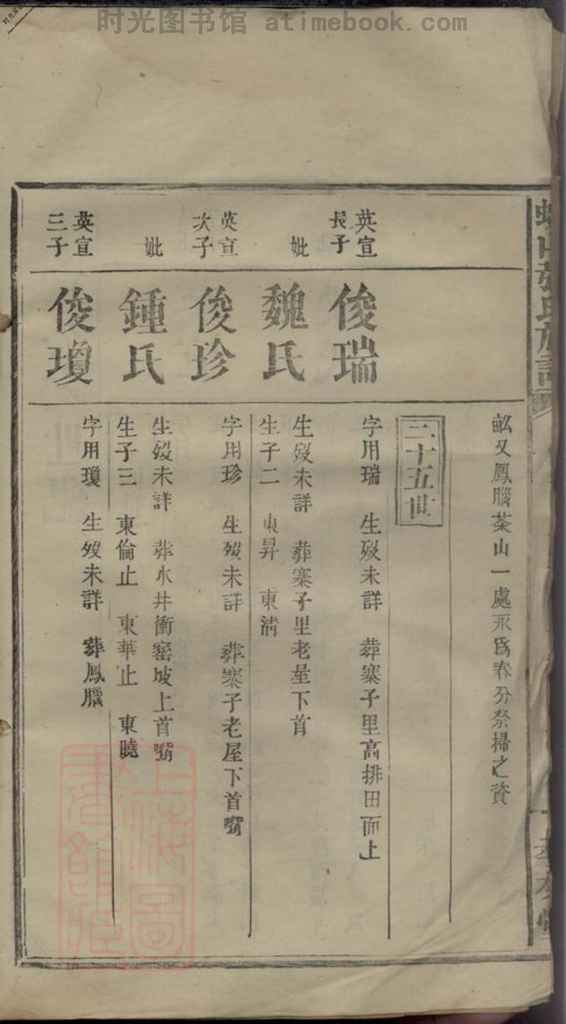 时光图书馆 atimebook.com
畝又鳳臘茶山一處永爲春分祭掃之資
二十五世
英宣
長子
俊瑞
字用瑞 生殁未詳 葬寨子里高排田面上
妣
魏氏
生殁未詳 葬寨子里老屋下首
生子二 東昇 東清
英宣
次子
俊珍
字用珍 生殁未詳 葬寨子老屋下首嘴
妣
鍾氏
生殁未詳 葬水井衝窑坡上首嘴
生子三 東倫止 東華止 東曉
英宣
三子
俊瓊
字用瓊 生殁未詳 葬鳳臘